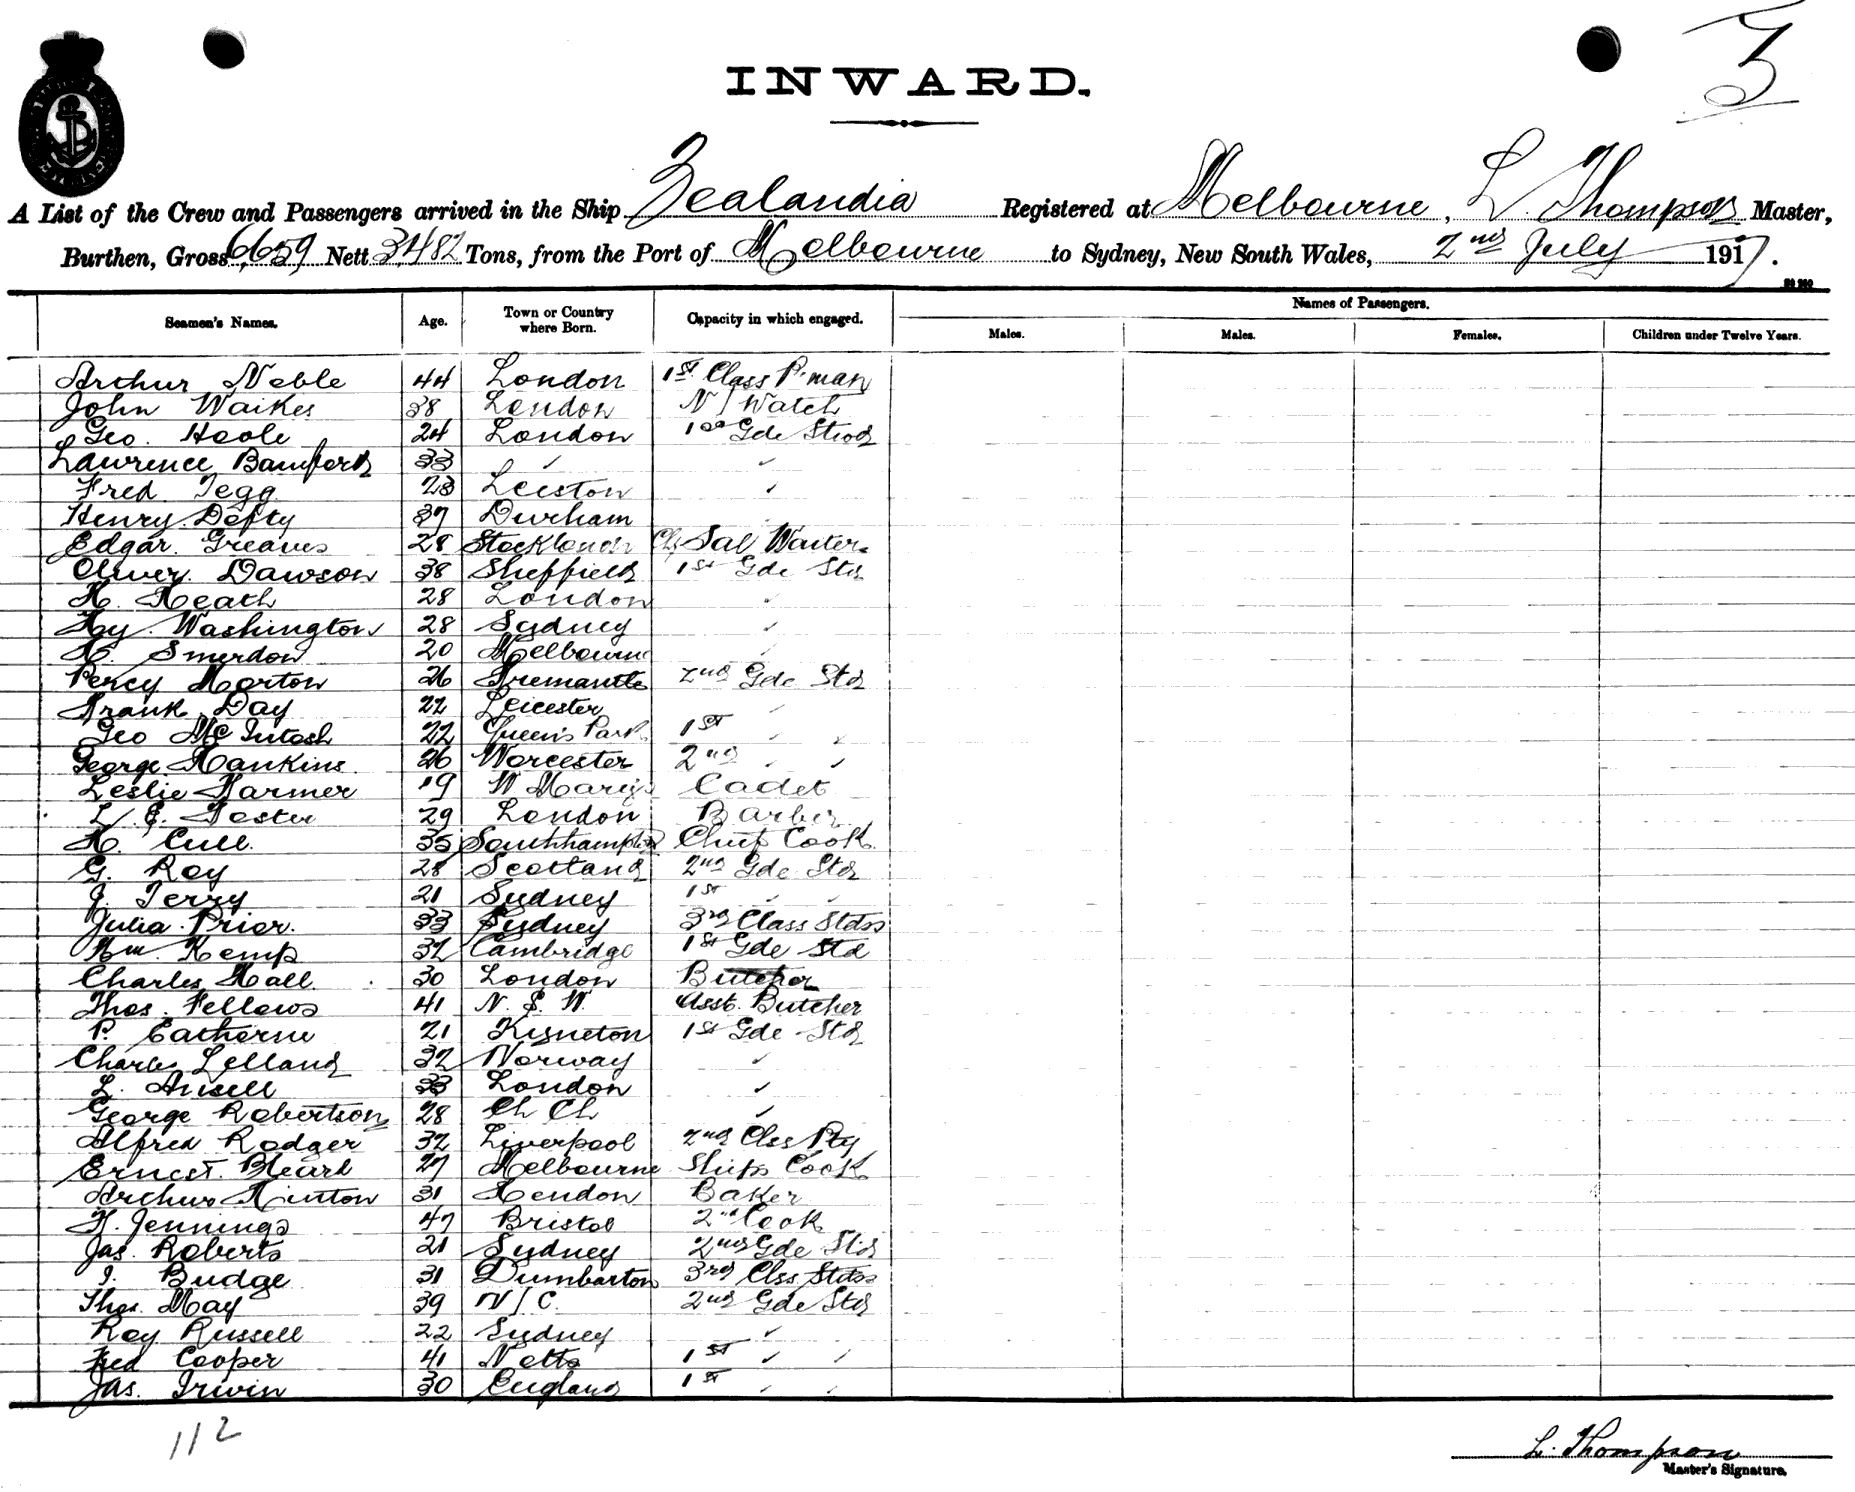 3
INWARD.
A List of the Crew and Passengers arrived in the Ship Zealandia Registered at Melbourne, L. Thompson Master,
Burthen, Gross 6,659 Nett 3,482 Tons, from the Port of Melbourne to Sydney, New South Wales, 2nd July 1917.
Names of Passengers.
Seamen's Names. Age. Town or Country where Born. Capacity in which engaged. Males. Males. Females. Children under Twelve Years.
Arthur Neble 44 London 1st Class P. man
John Waikes 38 London N/Watch
Geo. Hoole 24 London 1st Gde Stwd
Lawrence Bamford 33 ✓ ✓
Fred Tegg 23 Leiston ✓
Henry Defty 37 Durham
Edgar Greaves 28 Sal Waiter
Oliver Dawson 38 Sheffield 1st Gde Std
H. Heath 28 London ✓
Hy. Washington 28 Sydney ✓
H. Smerdon 20 Melbourne ✓
Percy Morton 26 Fremantle 2nd Gde Std
Frank Day 22 Leicester ✓
Geo McIntosh 22 Queen's Park 1st ✓ ✓
George Hankins 26 Worcester 2nd ✓ ✓
Leslie Farmer 19 Cadet
L. Foster 29 London Barber
H. Cull 35 Southhampton Chief Cook
G. Roy 28 Scotland 2nd Gde Std
J. Terry 21 Sydney 1st ✓ ✓
Julia Prior 33 Sydney 3rd Class Stdss
Wm. Kemp 32 Cambridge 1st Gde Std
Charles Hall 30 London Butcher
Thos. Fellows 41 N. S. W. Asst. Butcher
P. Eatherne 21 Kyneton 1st Gde Std
Charles Lelland 32 Norway ✓
L. Ansell 33 London ✓
George Robertson 28 Ch Ch ✓
Alfred Rodger 32 Liverpool 2nd Clss Pty
Ernest Bleard 27 Melbourne Ships Cook
Arthur Hinton 31 Hendon Baker
H. Jennings 47 Bristol 2nd Cook
Jas. Roberts 21 Sydney 2nd Gde Std
I. Budge 31 Dumbarton 3rd Clss Stdss
Thos. May 39 N/C. 2nd Gde Std
Roy Russell 22 Sydney ✓
Fred Cooper 41 Notts 1st ✓ ✓
Jas. Irwin 30 England 1st ✓ ✓
112
L. Thompson
Master's Signature.